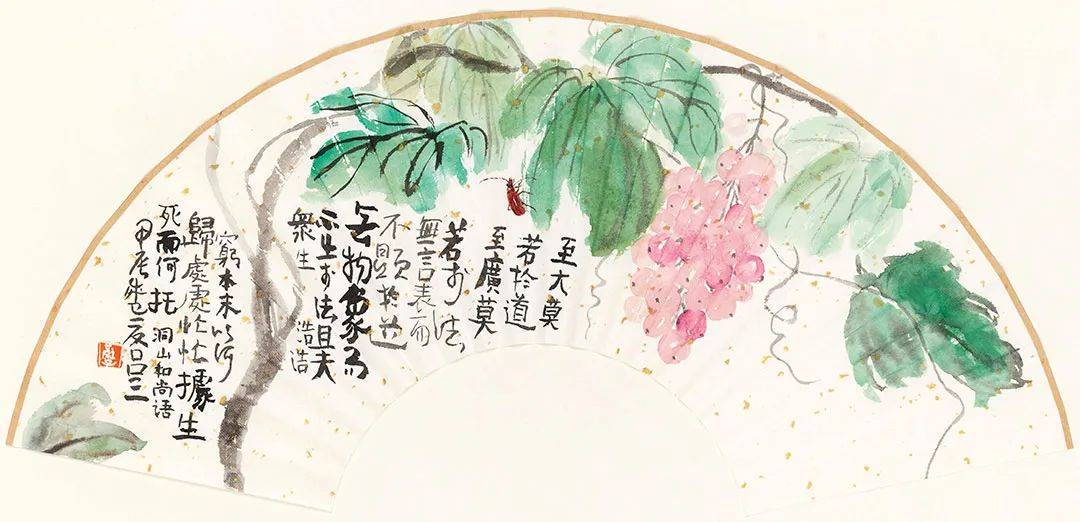 至大莫
若於道
至廣莫
若於法
無言表而
不顯於道
无物象而
於法且夫
衆生 浩浩
窮本末以何
歸處處忙忙據生
死而何托 洞山和尚語
甲辰朱夏呂三